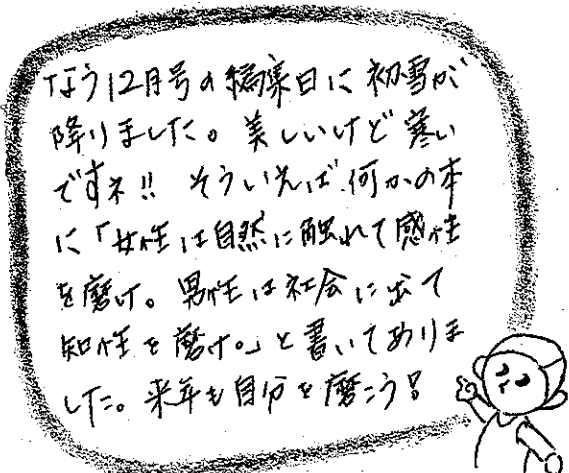 なう12月号の編集日に初雪が
降りました。美しいけど寒い
ですネ!! そういえば、何かの本
に「女性は自然に触れて感性
を磨け。男性は社会に出て
知性を磨け。」と書いてありま
した。来年も自分を磨こう!